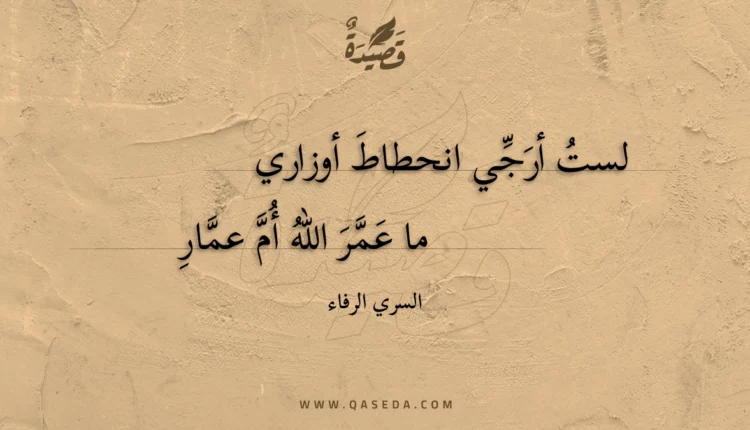 قَصِيدَةٌ
لستُ أرَجِّي انحطاطَ أوزاري
ما عَمَّرَ اللهُ أُمَّ عمَّارِ
السري الرفاء
WWW.QASEDA.COM